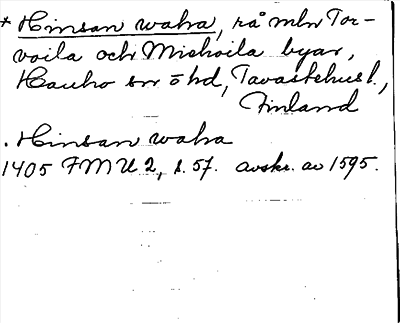 * Hinsan waha, rå mln Tor-
voila och Miehoila byar,
Hauho sn ö hd, Tavastehus l.,
Finland
. Hinsan waha
1405 FMU 2, s. 57. avskr. av 1595.